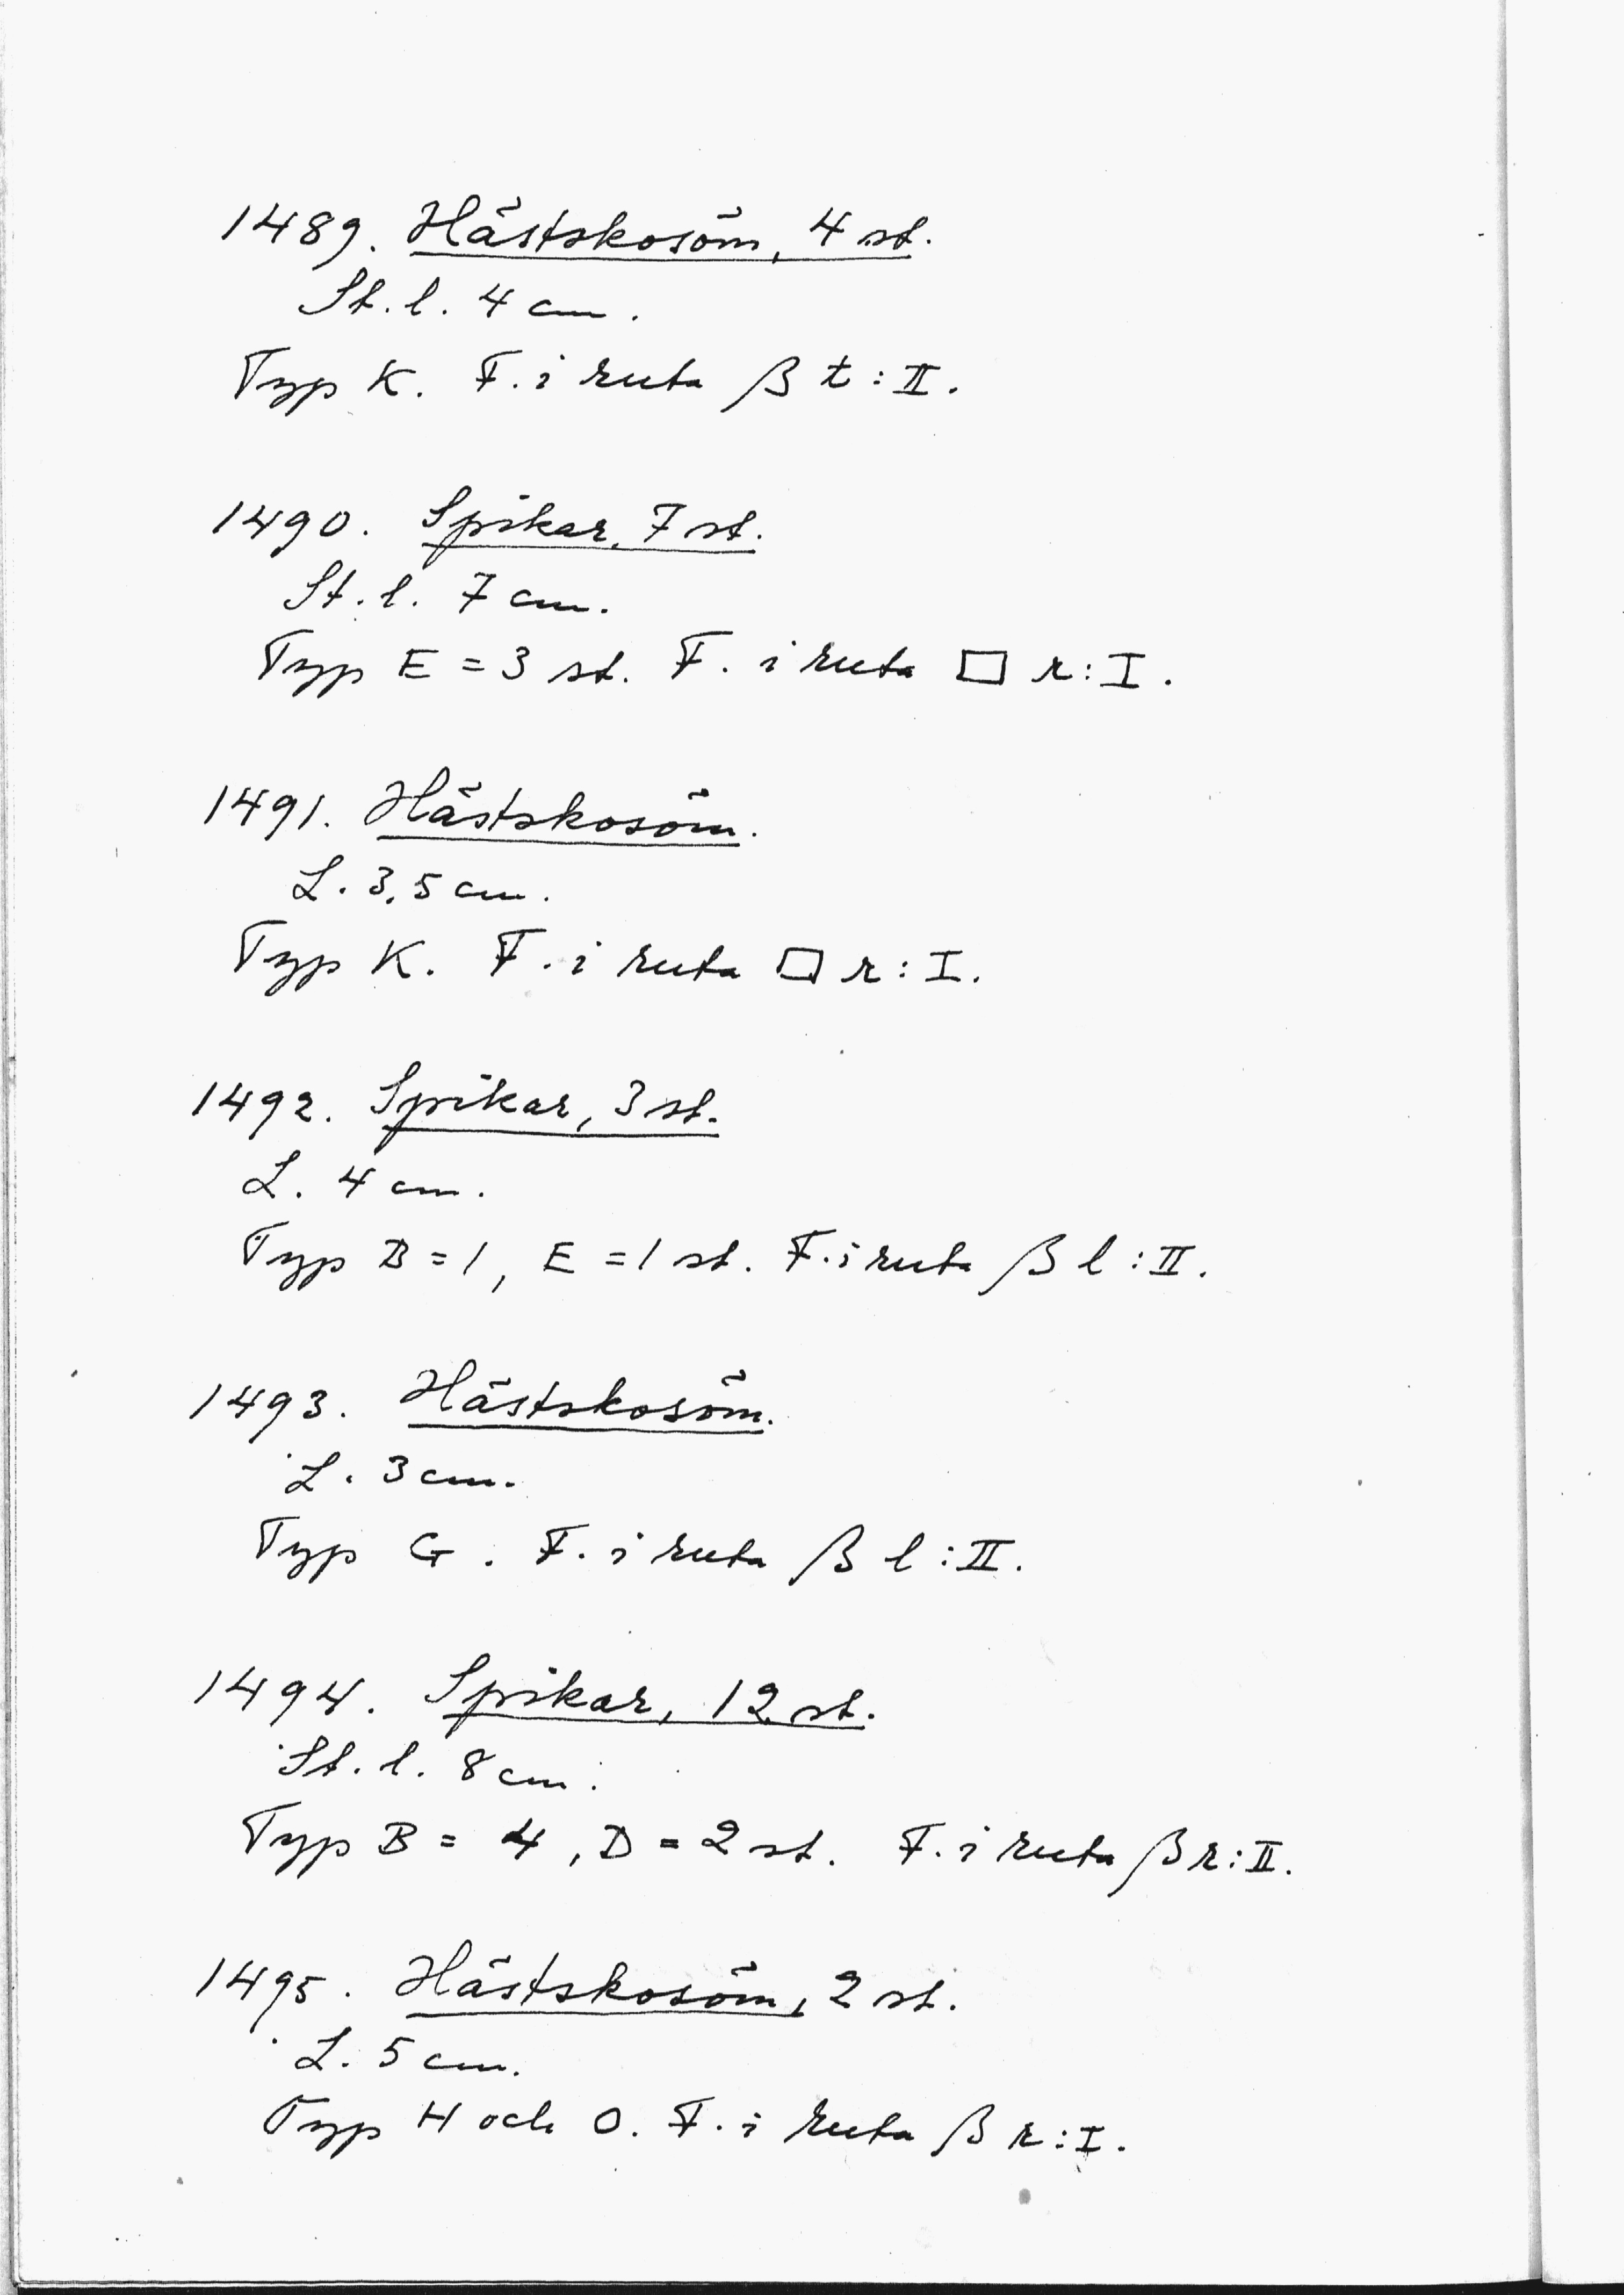 1489. Hästskosöm, 4 st.
St. l. 4 cm.
Typ K. F. i ruta β t : II.
1490. Spikar, 7 st.
St. l. 7 cm.
Typ E = 3 st. F. i ruta □ r : I.
1491. Hästskosöm.
L. 3,5 cm.
Typ K. F. i ruta □ r : I.
1492. Spikar, 3 st.
L. 4 cm.
Typ B = 1, E = 1 st. F. i ruta β l : II.
1493. Hästskosöm.
L. 3 cm.
Typ G. F. i ruta β l : II.
1494. Spikar, 12 st.
St. l. 8 cm.
Typ B = 4, D = 2 st. F. i ruta β r : II.
1495. Hästskosöm, 2 st.
L. 5 cm.
Typ H och O. F. i ruta β r : I.